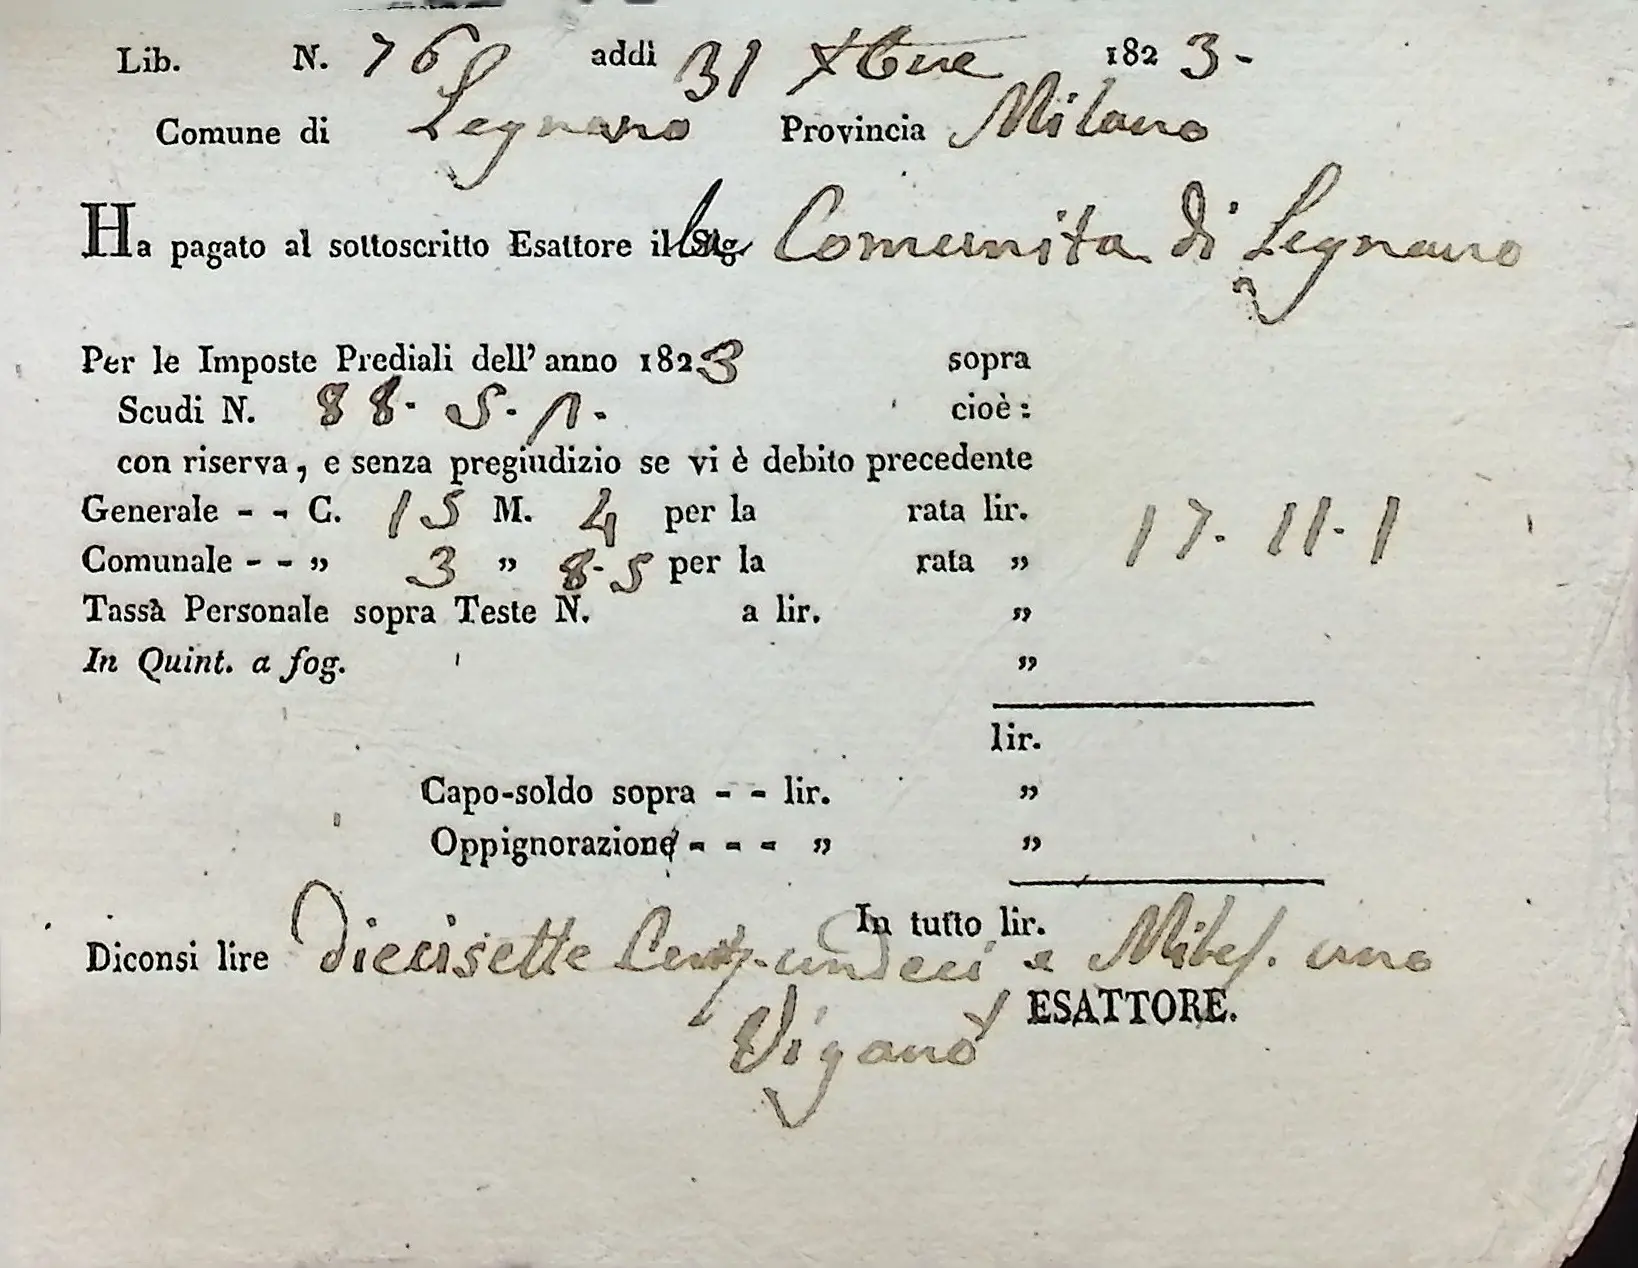 Lib. N. 76 addì 31 Xbre 1823-
Comune di Legnano Provincia Milano
Ha pagato al sottoscritto Esattore il Sig. la Comunita di Legnano
Per le Imposte Prediali dell' anno 1823 sopra
Scudi N. 88. 5. 1. cioè:
con riserva, e senza pregiudizio se vi è debito precedente
Generale - - C. 15 M. 4 per la rata lir. 17. 11. 1
Comunale - - „ 3 „ 8. 5 per la rata „
Tassà Personale sopra Teste N. a lir. „
In Quint. a fog. „
lir.
Capo-soldo sopra - - lir. „
Oppignorazione - - - „ „
In tutto lir.
Diconsi lire diecisette Cent. undeci e Miles. uno
Viganò ESATTORE.